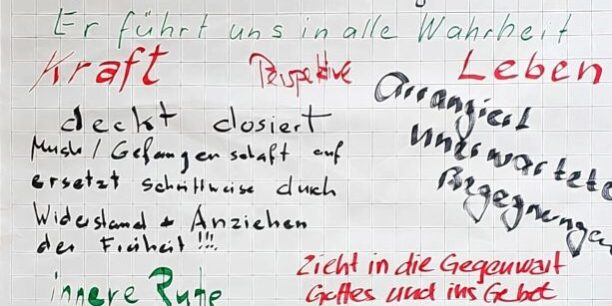 Er führt uns in alle Wahrheit
Kraft
Perspektive
Leben
deckt dosiert
/ Gefangenschaft auf
ersetzt schrittweise durch
Widerstand + Anziehen
der Freiheit !!!
arrangiert
unerwartete
Begegnungen
innere Ruhe
Zieht in die Gegenwart
Gottes und ins Gebet